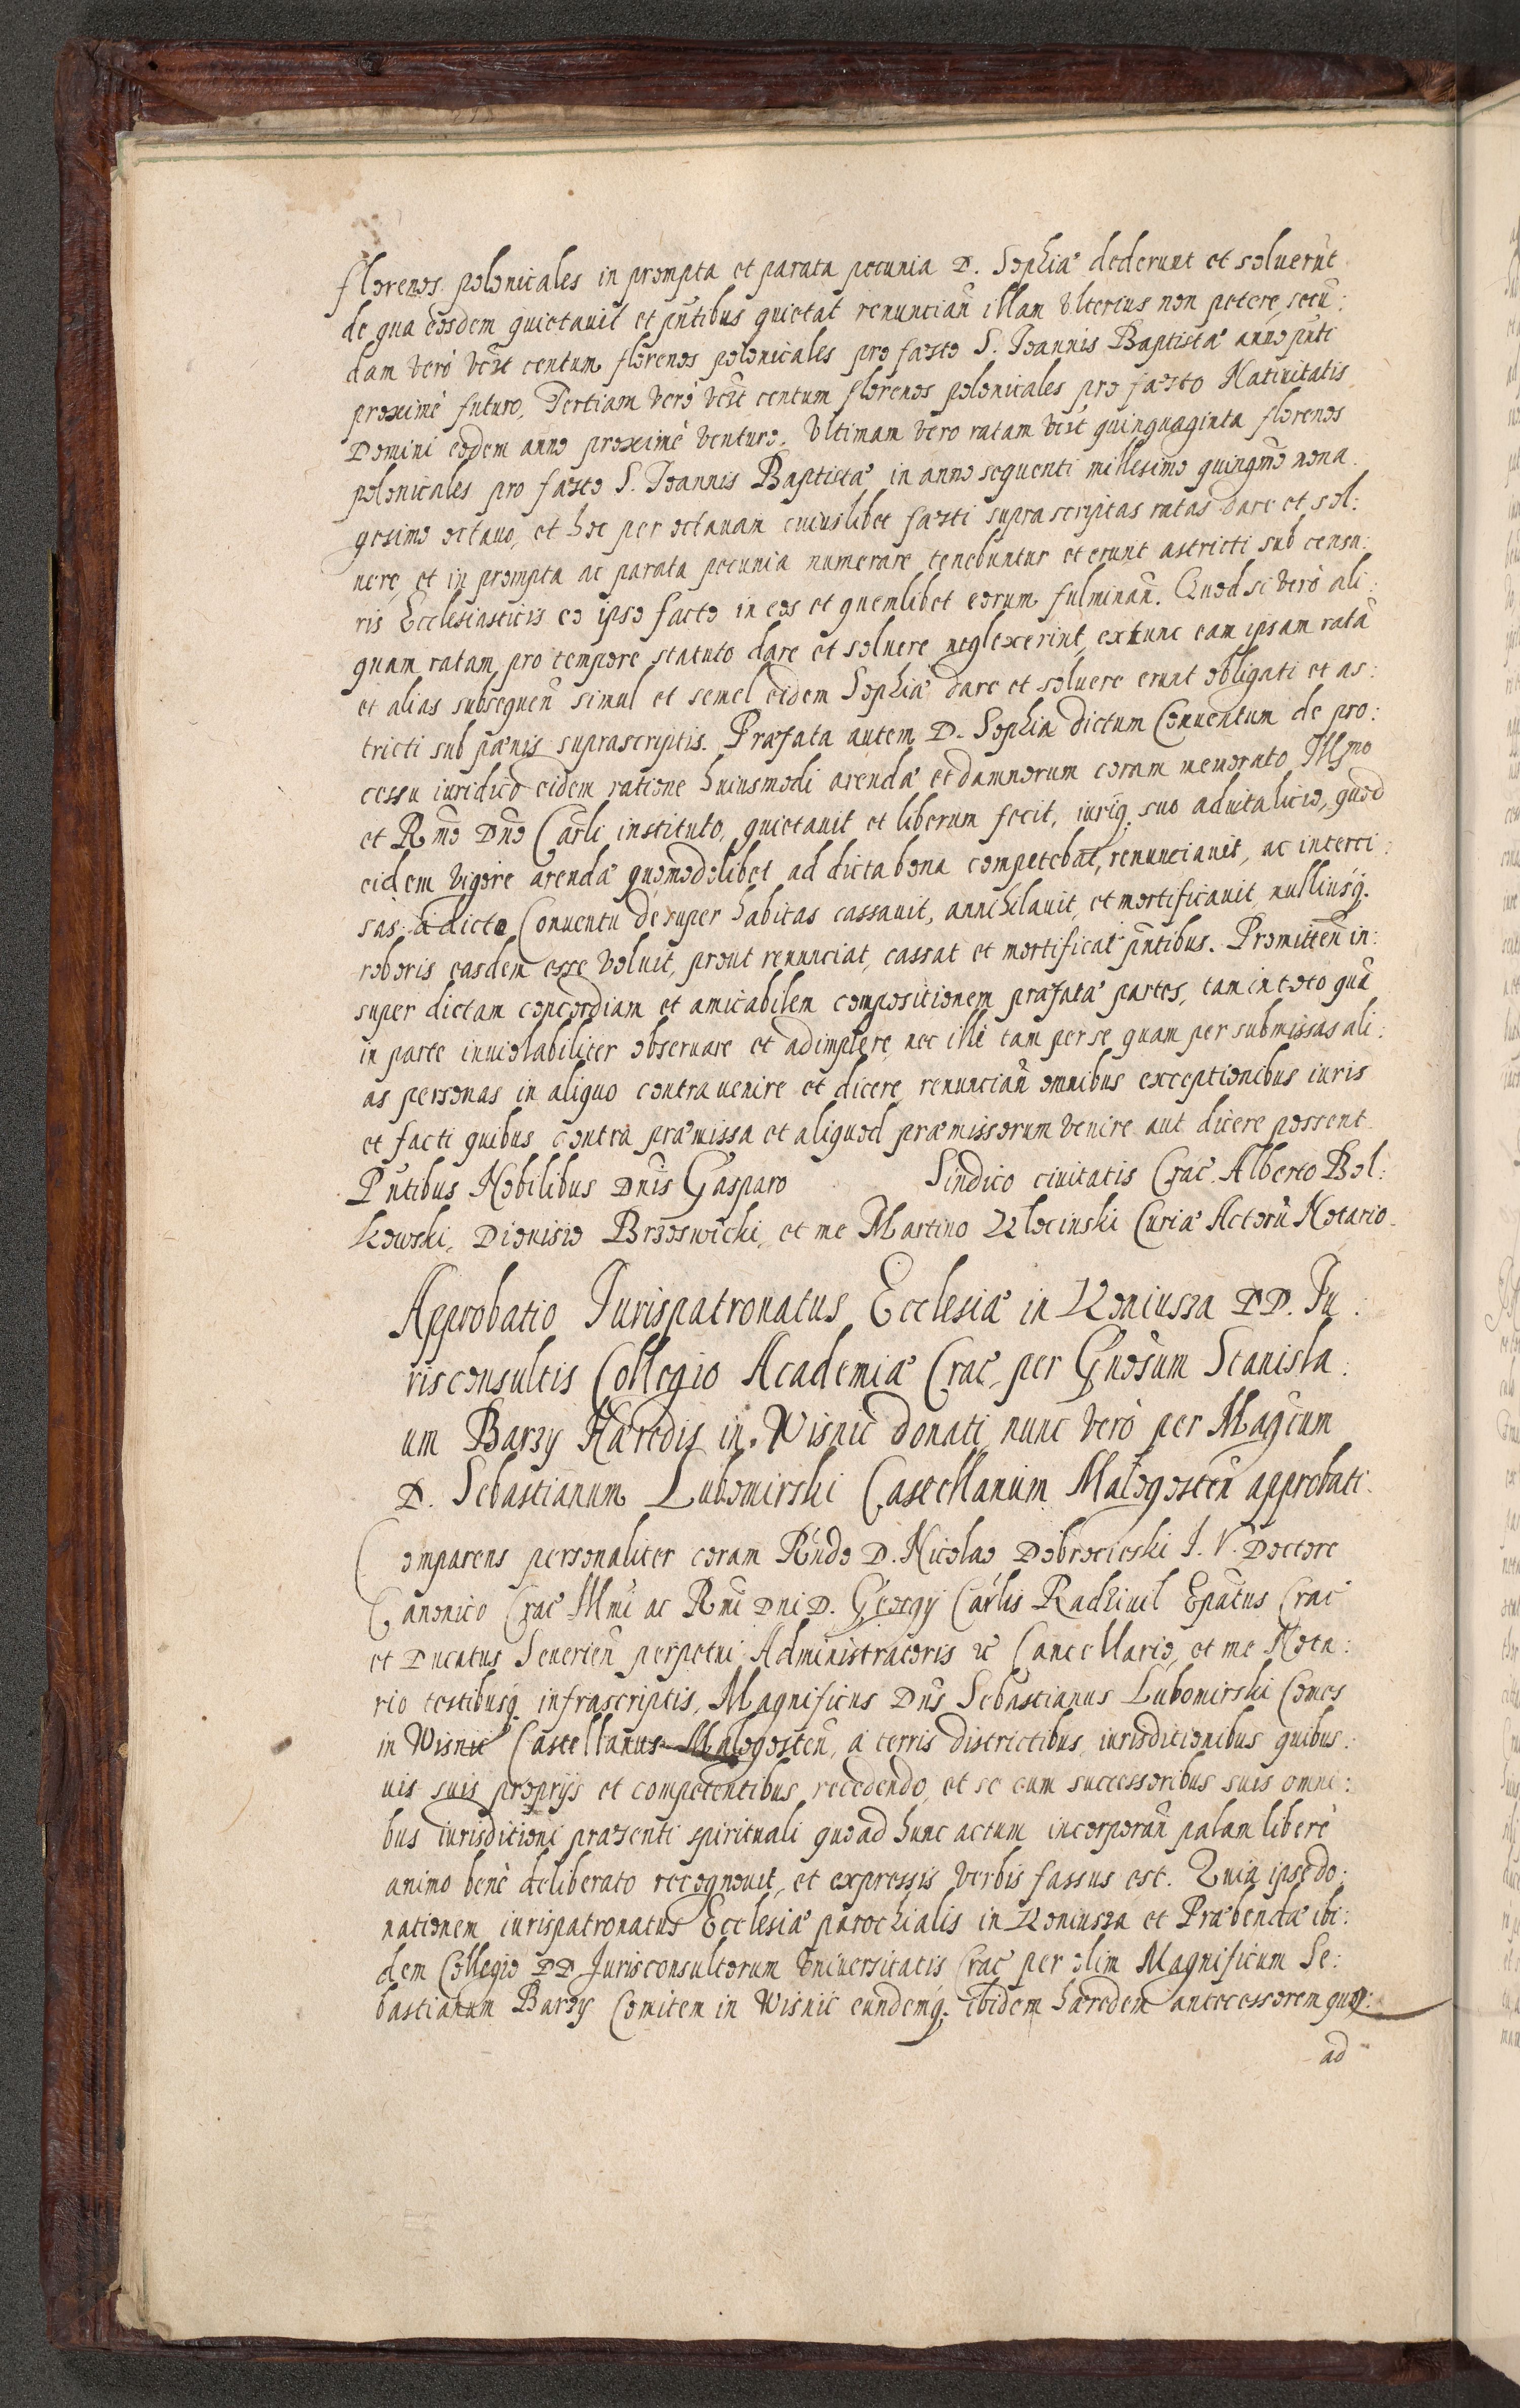 florenos polonicales in prompta et parata pecunia D. Sophiæ dederunt et soluerũt
de qua eosdem quietauit et pñtibus quietat renunciañ illam vlterius non petere, secũ:
dam verò vczt centum florenos polonicales pro fæsto S. Joannis Baptistæ anno pñti
proximè futuro, Tertiam verò vczt centum florenos polonicales pro fæsto Natiuitatis
Domini eodem anno proximè venturo. Vltimam vero ratam vczt quinquaginta florenos
polonicales pro fæsto S. Joannis Baptistæ in anno sequenti millesimo quingmo nona
gesimo octauo, et hoc per octauam cuiuslibet fæsti suprascriptas ratas dare et sol:
uere, et in prompta ac parata pecunia numerare tenebuntur et erunt astricti sub censu:
ris Ecclesiasticis eo ipso facto in eos et quemlibet eorum fulminañ. Quod si verò ali:
quam ratam pro tempore statuto dare et soluere neglexerint, extunc eam ipsam ratã
et alias subsequeñ simul et semel eidem Sophiæ dare et soluere erunt obligati et as:
tricti sub pænis suprascriptis. Præfata autem D. Sophia dictum Conuentum de pro:
cessu iuridico eidem ratione huiusmodi arendæ et damnorum coram memorato Illmo
et Rmo Dño Carli instituto, quietauit et liberum fecit, iuriq; suo aduitalicio, quod
eidem vigore arendæ quomodolibet ad dicta bona competebat, renunciauit, ac interci:
sas à dicto Conuentu desuper habitas cassauit, annihilauit, et mortificauit, nulliusq;
roboris easdem esse voluit, prout renunciat, cassat et mortificat pñtibus. Promitteñ in:
super dictam concordiam et amicabilem compositionem præfatæ partes, tam in toto quã
in parte inuiolabiliter obseruare et adimplere, nec illi tam per se quam per submissas ali:
as personas in aliquo contrauenire et dicere, renunciañ omnibus exceptionibus iuris
et facti quibus contra præmissa et aliquod præmissorum venire aut dicere possent.
Pñtibus Nobilibus Dñis Gasparo Sindico ciuitatis Crac̃ Alberto Bol:
kowski, Dionisio Brzoswicki, et me Martino Klocinski Curiæ Actorũ Notario.
Approbatio Jurispatronatus Ecclesiæ in Koniusza DD. Ju:
risconsultis Collegio Academiæ Crac̃, per Gnosum Stanisla:
um Barzy Hæredis in Wisnic donati nunc verò per Magcum
D. Sebastianum Lubomirski Castellanum Malogosteñ approbati.
Comparens personaliter coram Rñdo D. Nicolao Dobrocieski J. V. Doctore
Canonico Crac̃ Illmi ac Rmi Dni D. Georgij Carlis Radziuil Epatus Crac̃
et Ducatus Seuerieñ perpetui Administratoris &c Cancellario, et me Nota:
rio testibusq; infrascriptis, Magnificus Dñs Sebastianus Lubomirski Comes
in Wisnic Castellanus Malogosteñ, à terris districtibus, iurisditionibus quibus:
uis suis proprijs et competentibus recedendo, et se cum successoribus suis omni:
bus iurisditioni præsenti spirituali quoad hunc actum incorporañ palam liberè
animo benè deliberato recognouit, et expressis verbis fassus est. Quia ipse do:
nationem iurispatronatus Ecclesiæ parochialis in Koniusza et Præbendæ ibi:
dem Collegio DD Jurisconsultorum Vniuersitatis Crac̃ per olim Magnificum Se:
bastianum Barzy Comitem in Wisnic eundemq; ibidem hæredem antecessorem quo:
ad